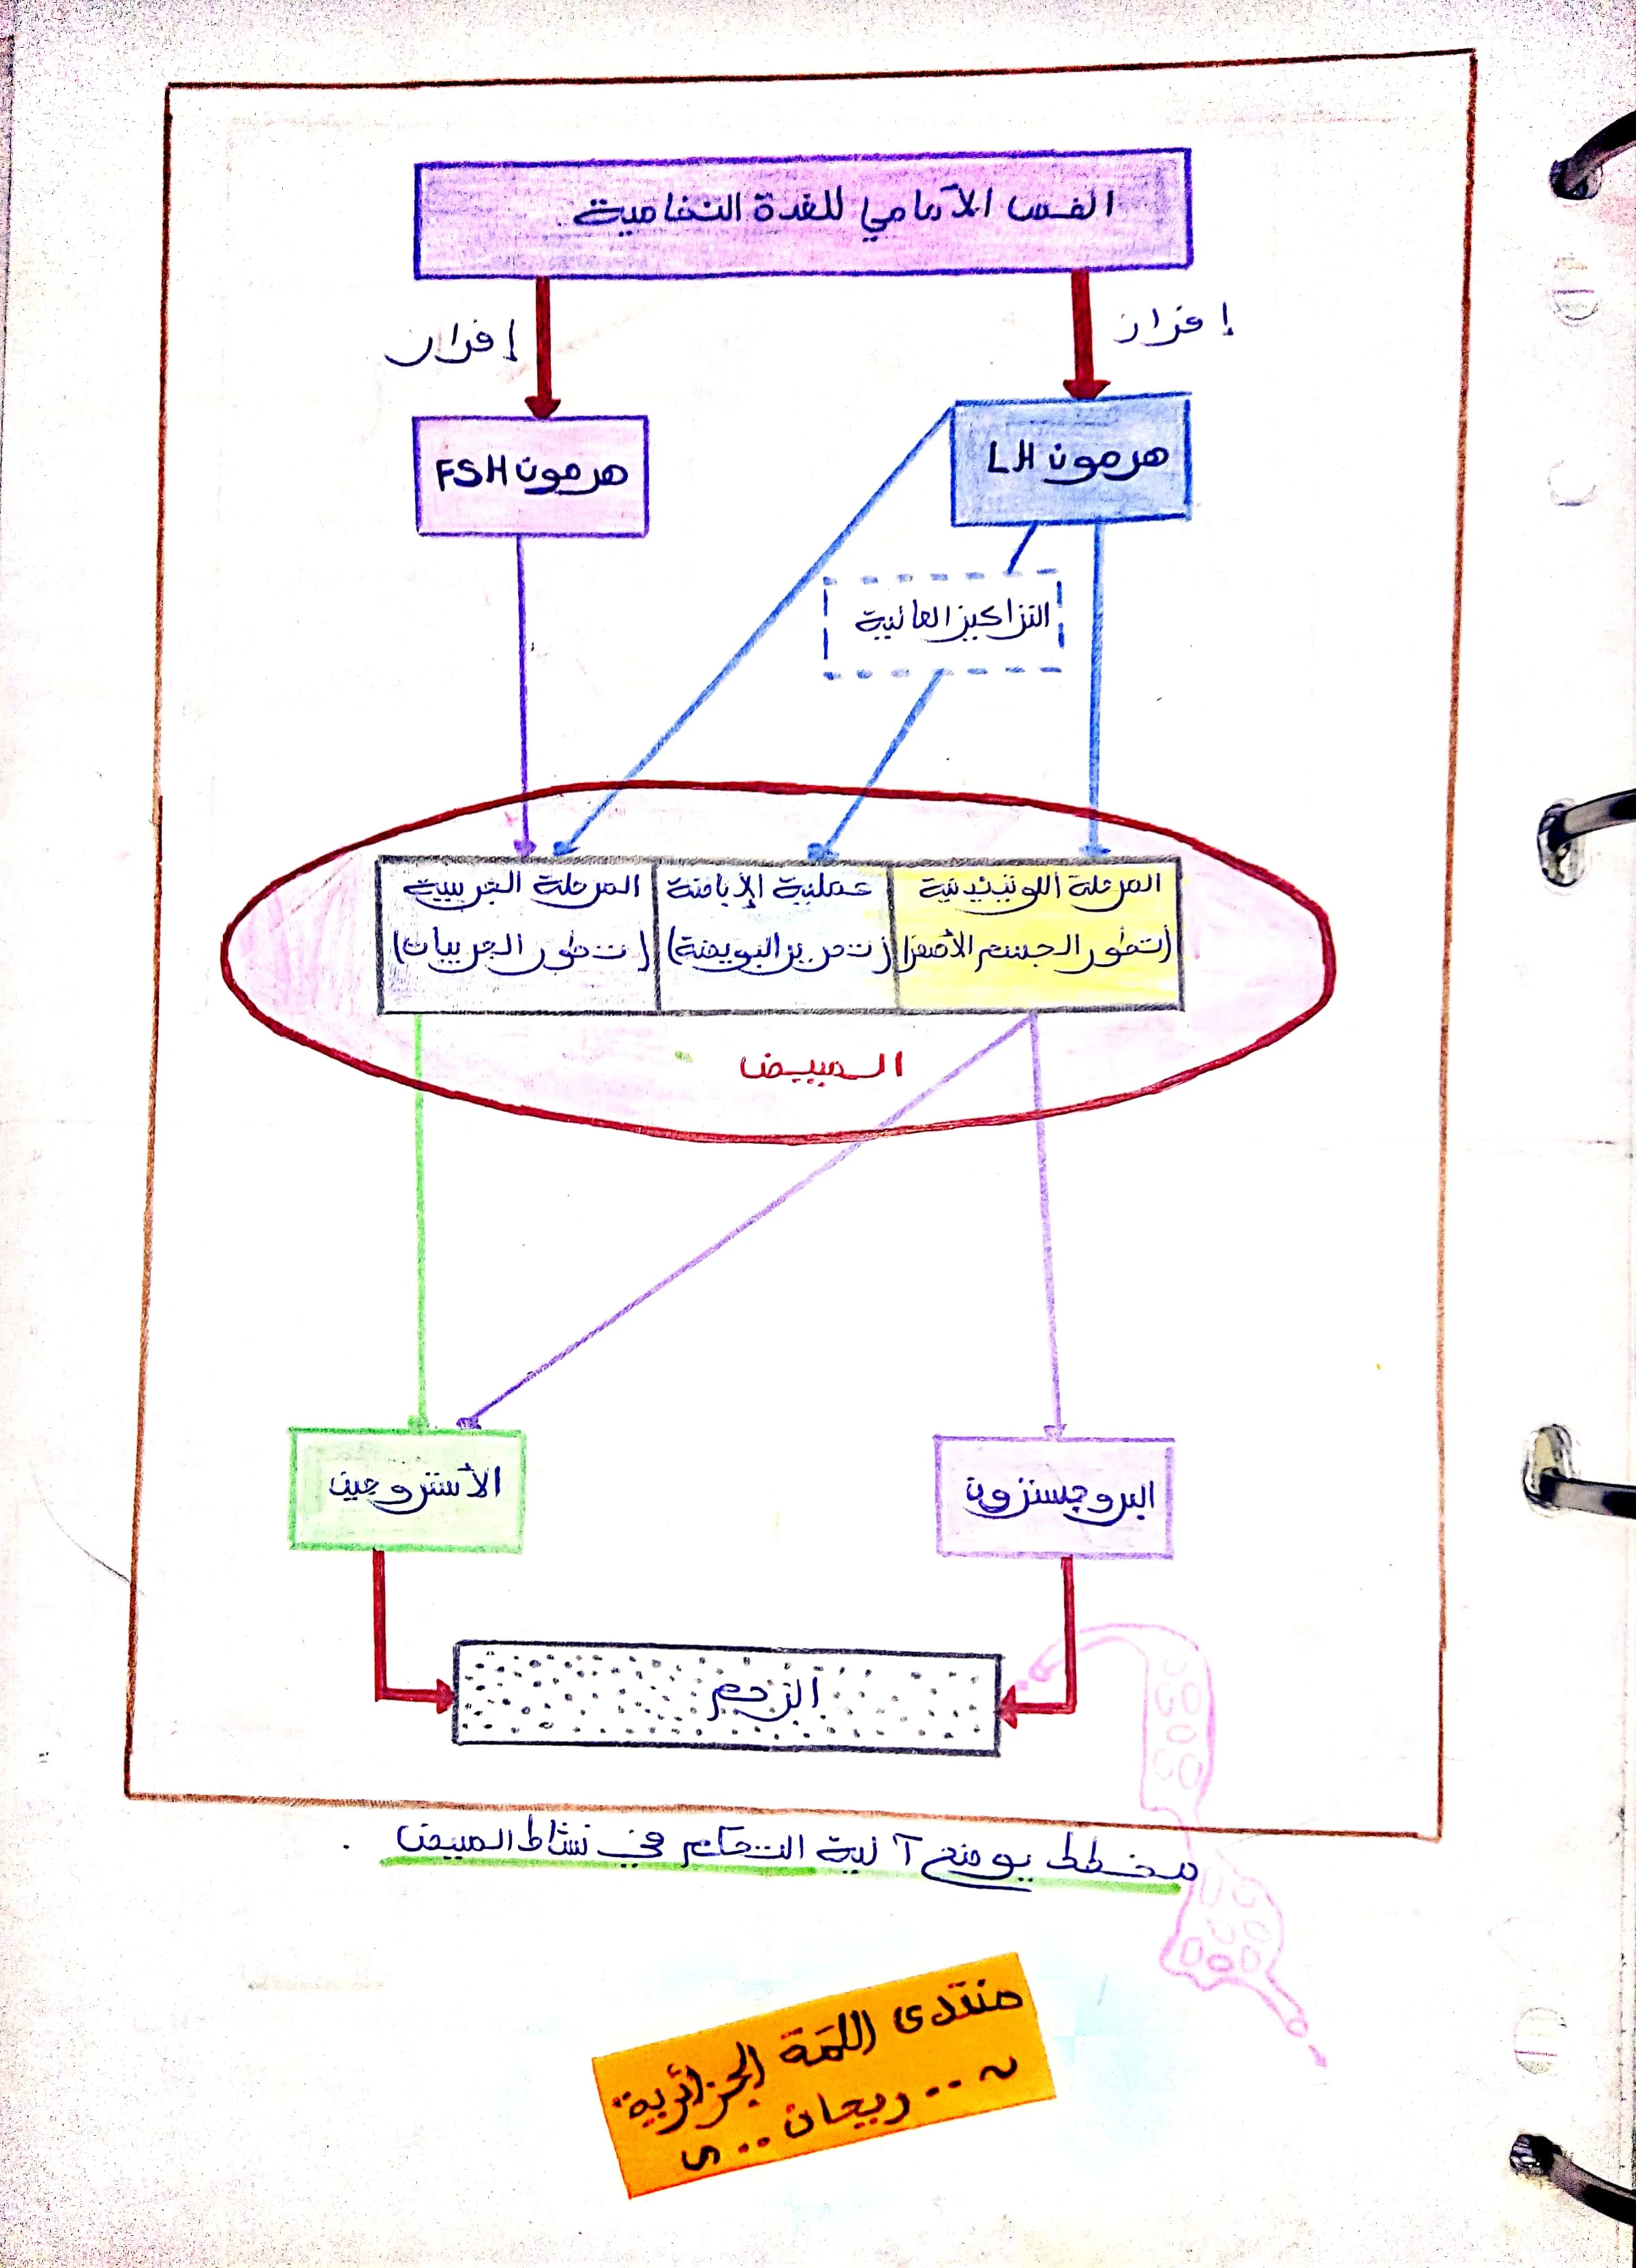 الفص الأمامي للغدة النخامية.
إفراز
إفراز
هرمون LH
هرمون FSH
التراكيز العالية
المرحلة اللوتيئينية
(تطور الجسم الأصفر)
عملية الإباضة
(تحرير البويضة)
المرحلة الجريبية
(تطور الجريبات)
المبيض
البروجسترون
الأستروجين
الرحم
مخطط يوضح آلية التحكم في نشاط المبيض.
منتدى اللمة الجزائرية
ن .. ريحان .. ي